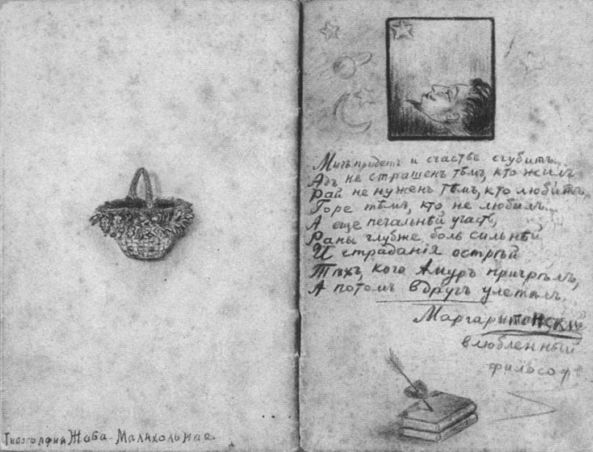 Типография Жаба-Малахольная.
Мигъ придетъ и счастье сгубитъ...
Адъ не страшенъ тѣмъ, кто жилъ
Рай не нуженъ тѣмъ, кто любитъ.
Горе тѣмъ, кто не любилъ...
А еще печальнѣй участь,
Раны глубже боль сильнѣй
И страданія острѣй
Тѣхъ, кого Амуръ пригрѣлъ,
А потомъ вдругъ улетѣлъ.
Маргаритонскій
влюбленный
философъ